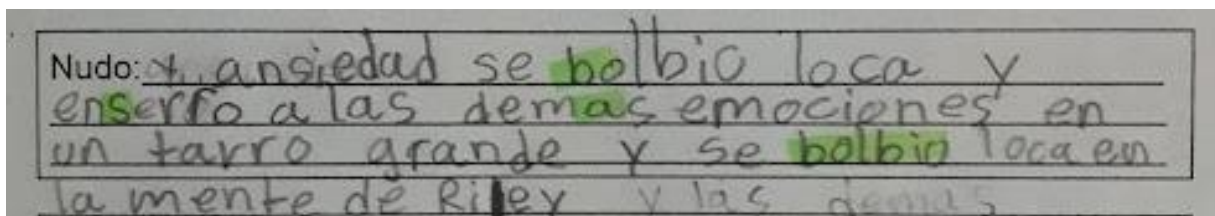 Nudo: y ansiedad se bolbio loca y
enserro a las demas emociones en
un tarro grande y se bolbio loca en
la mente de Riley y las demas